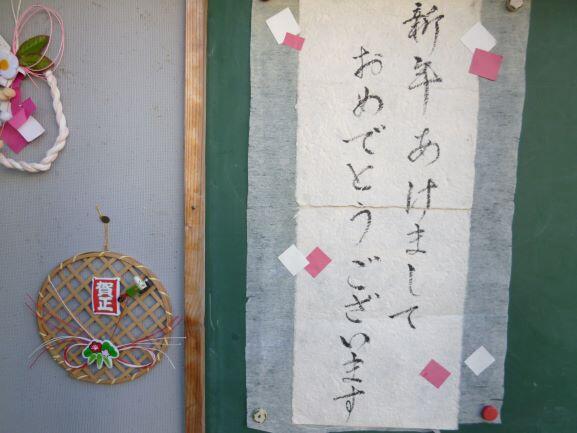 新年あけまして
おめでとうございます
賀正